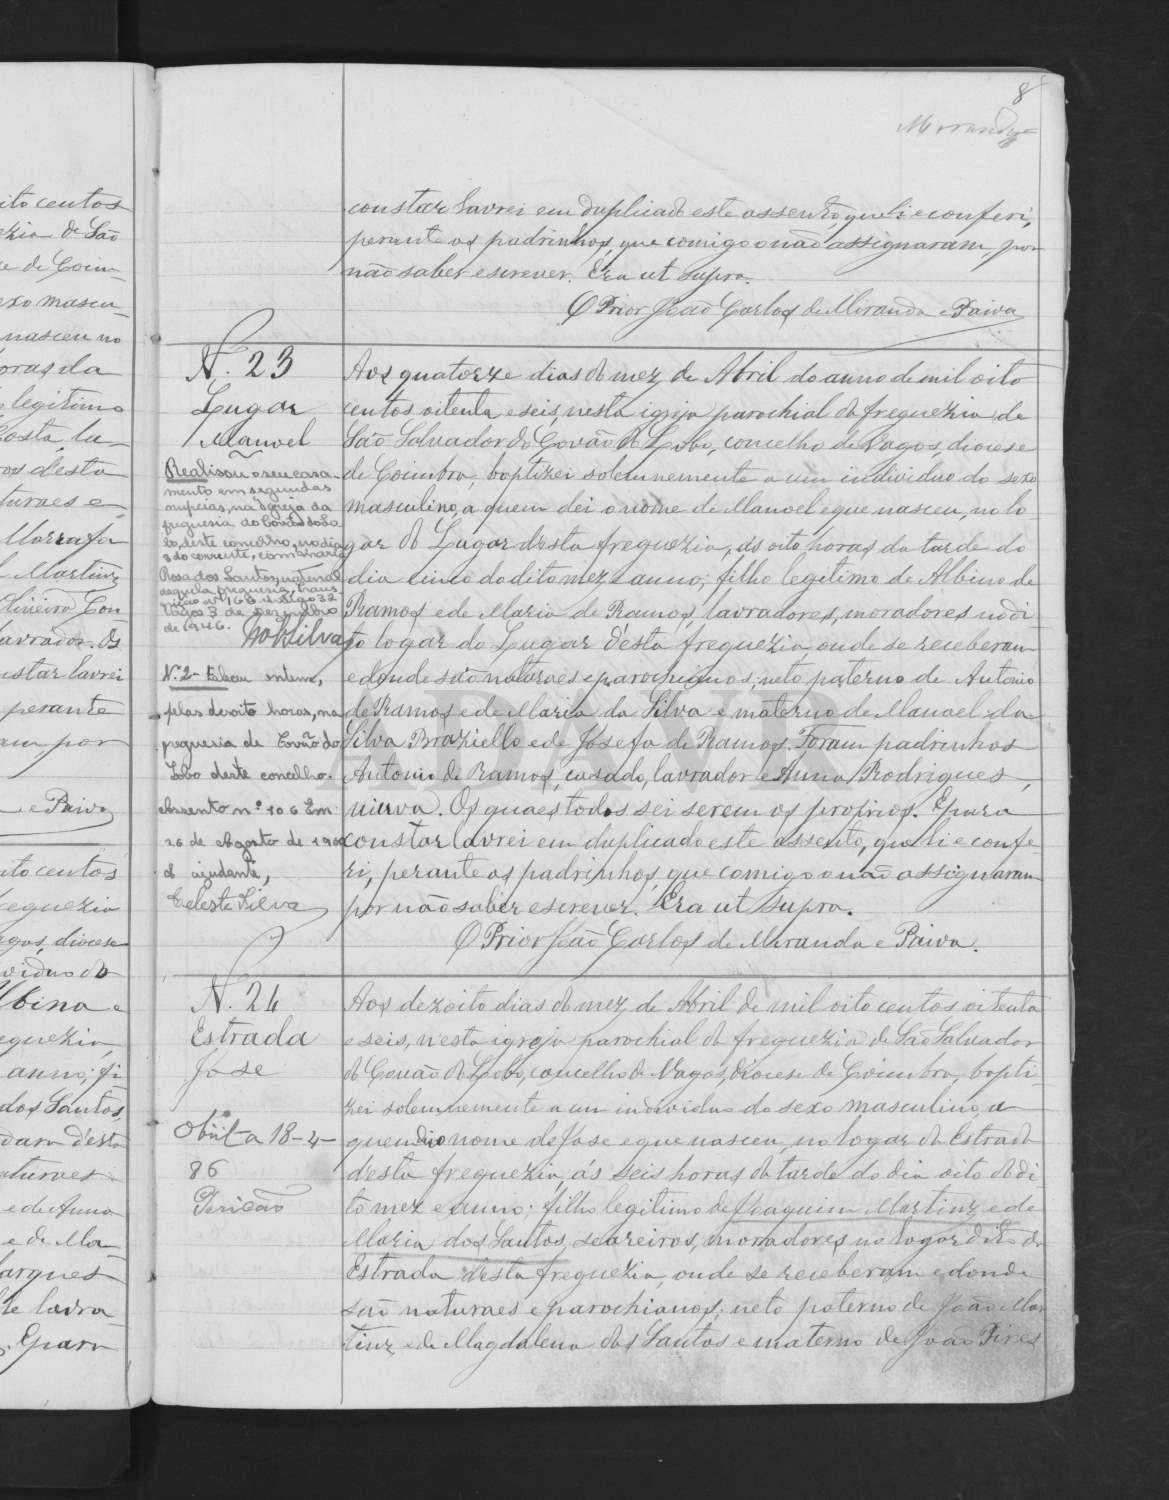 8
constar lavrei em duplicado este assento, que li e conferi,
perante os padrinhos, que comigo o não assignaram, por
não saber escrever. Era ut supra.
O Prior João Carlos de Miranda e Paiva
N. 23
Lugar
Manoel
Realisou o seu casa-
mento em segundas
nupcias, na Igreja da
freguesia do Covão do Lo-
bo, deste concelho, no dia
3 do corrente, com Maria
Rosa dos Santos, natural
daquela freguesia,
Vagos 3 de Dezembro
de 1946.
Silva
N.º 2- Faleceu ontem,
pelas dezoito horas, na
freguesia de Covão do
Lobo deste concelho.
Assento nº 106 Em
26 de Agosto de
O ajudante,
Celeste Silva
Aos quatorze dias do mez de Abril do anno de mil oito
centos oitenta e seis, nesta igreja parochial da freguezia de
São Salvador do Covão do Lobo, concelho de Vagos, diocese
de Coimbra, baptizei solemnemente a um individuo do sexo
masculino, a quem dei o nome de Manoel e que nasceu, no lo-
gar do Lugar d'esta freguezia, ás oito horas da tarde do
dia cinco do dito mez e anno; filho legitimo de Albino de
Ramos e de Maria de Ramos, lavradores, moradores no di-
to logar do Lugar d'esta freguezia, onde se receberam
e donde são naturaes e parochianos; neto paterno de Antonio
de Ramos e de Maria da Silva e materno de Manoel da
Silva Braziello e de Josefa de Ramos. Foram padrinhos
Antonio de Ramos, casado, lavrador e Anna Rodrigues,
viuva. Os quaes todos sei serem os proprios. E para
constar lavrei em duplicado este assento, que li e confe-
ri, perante os padrinhos, que comigo o não assignaram
por não saber escrever. Era ut supra.
O Prior João Carlos de Miranda e Paiva.
N. 24
Estrada
José
Obiit a 18-4-
86
Aos dezoito dias do mez de Abril de mil oito centos oitenta
e seis, n'esta igreja parochial da freguezia de São Salvador
do Covão do Lobo, concelho de Vagos, diocese de Coimbra, bapti-
zei solemnemente a um individuo do sexo masculino, a
quem dei o nome de José e que nasceu, no logar da Estrada
d'esta freguezia, ás seis horas da tarde do dia oito do di-
to mez e anno; filho legitimo de Joaquim Martinz e de
Maria dos Santos, seareiros, moradores no logar dito da
Estrada d'esta freguezia, onde se receberam e donde
são naturaes e parochianos; neto paterno de João Mar-
tinz e de Magdalena dos Santos e materno de João Pires
ADAVR